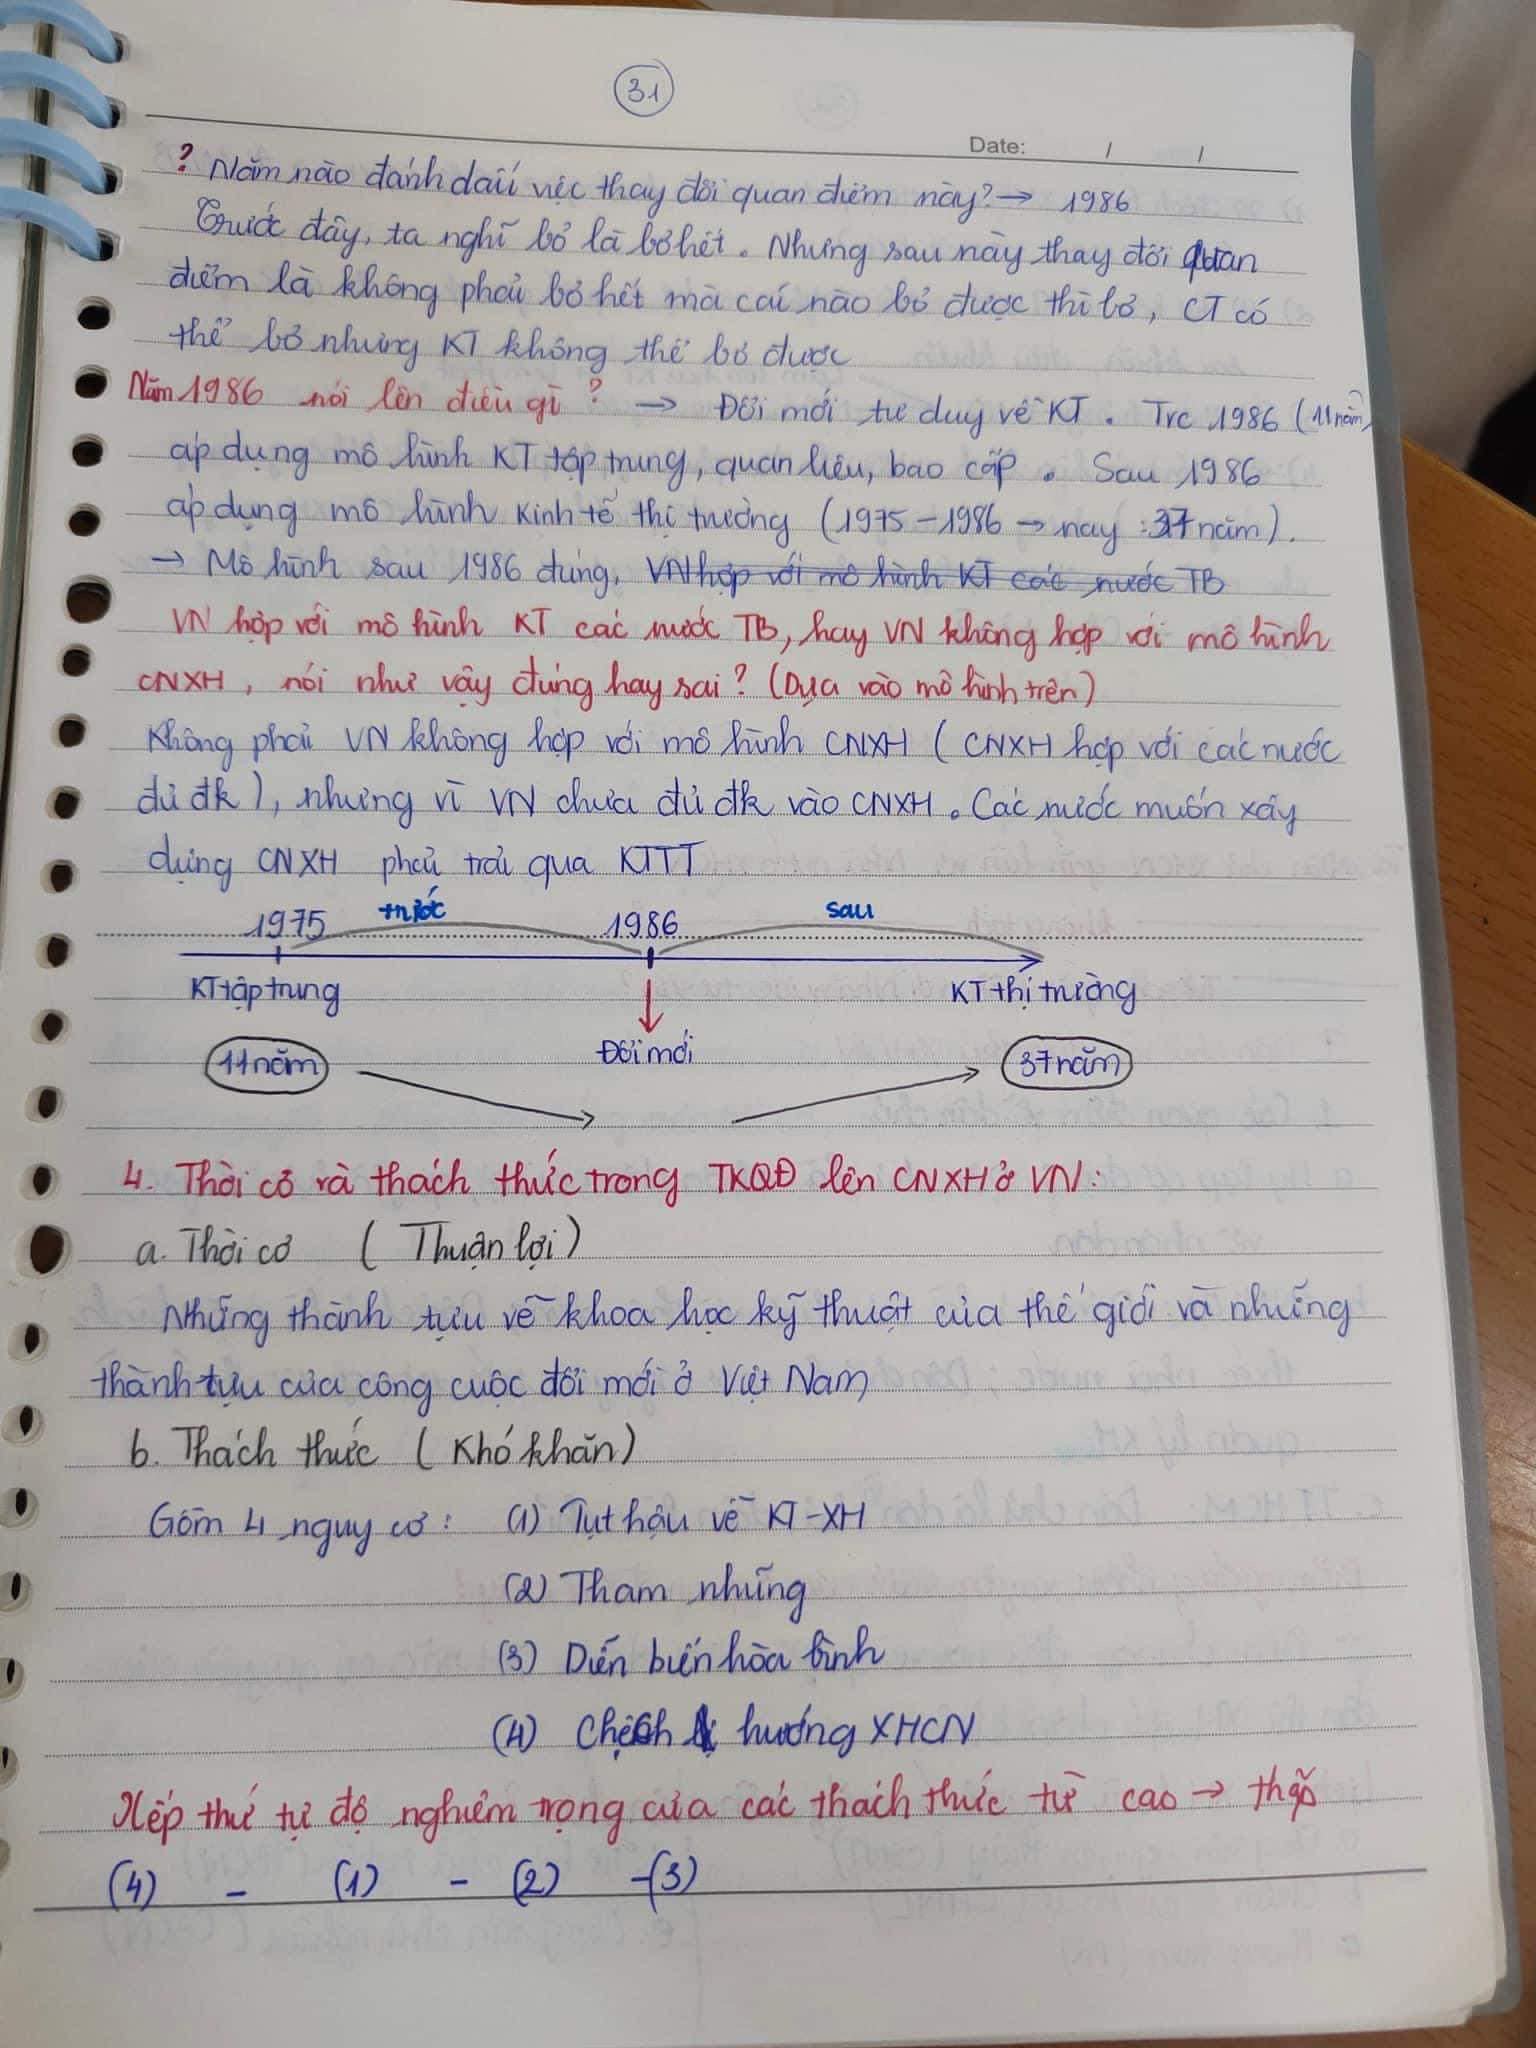 31
Date: / /
? Năm nào đánh dấu việc thay đổi quan điểm này? → 1986
Trước đây, ta nghĩ bỏ là bỏ hết. Nhưng sau này thay đổi quan
điểm là không phải bỏ hết mà cái nào bỏ được thì bỏ, CT có
thể bỏ nhưng KT không thể bỏ được
Năm 1986 nói lên điều gì? → Đổi mới tư duy về KT. Trc 1986 (11 năm)
áp dụng mô hình KT tập trung, quan liêu, bao cấp. Sau 1986
áp dụng mô hình Kinh tế thị trường (1975 - 1986 → nay : 37 năm).
→ Mô hình sau 1986 đúng, VN hợp với mô hình KT các nước TB
VN hợp với mô hình KT các nước TB, hay VN không hợp với mô hình
CNXH, nói như vậy đúng hay sai? (Dựa vào mô hình trên)
Không phải VN không hợp với mô hình CNXH (CNXH hợp với các nước
đủ đk), nhưng vì VN chưa đủ đk vào CNXH. Các nước muốn xây
dựng CNXH phải trải qua KTTT
1975 trước 1986 sau
KT tập trung KT thị trường
11 năm Đổi mới 37 năm
4. Thời cô và thách thức trong TKQĐ lên CNXH ở VN:
a. Thời cơ (Thuận lợi)
Những thành tựu về khoa học kỹ thuật của thế giới và những
thành tựu của công cuộc đổi mới ở Việt Nam
b. Thách thức (Khó khăn)
Gồm 4 nguy cơ: (1) Tụt hậu về KT-XH
(2) Tham nhũng
(3) Diễn biến hòa bình
(4) Chệch hướng XHCN
Xếp thứ tự độ nghiêm trọng của các thách thức từ cao → thấp
(4) - (1) - (2) - (3)